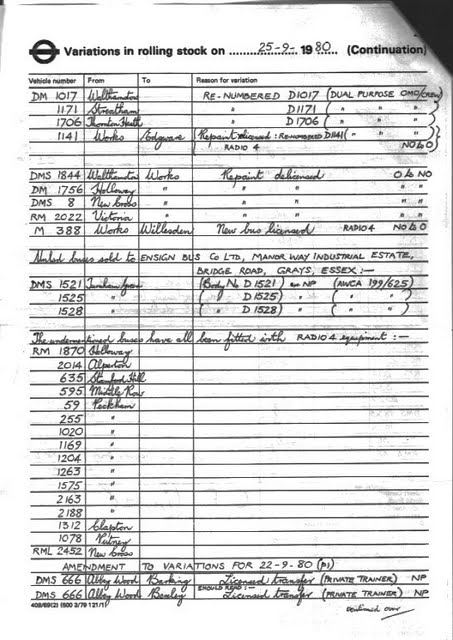 Variations in rolling stock on 25-9- 1980 (Continuation)
Vehicle number From To Reason for variation
DM 1017 Walthamstow RE-NUMBERED D1017 (DUAL PURPOSE OMO/CREW)
1171 Streatham " D1171 ( " " " )
1706 Thornton Heath " D1706 ( " " " )
1141 Works Edgware (Repaint licensed: RE-NUMBERED D1141 ( " " )
RADIO 4 NO to O
DMS 1844 Walthamstow Works Repaint delicensed O to NO
DM 1756 Holloway " " " "
DMS 8 New Cross " " " "
RM 2022 Victoria " " " "
M 388 Works Willesden New bus licensed RADIO 4 NO to O
United buses sold to ENSIGN BUS Co LTD, MANOR WAY INDUSTRIAL ESTATE,
BRIDGE ROAD, GRAYS, ESSEX :—
DMS 1521 Turnham Green (Body No D 1521) ex NP (AWCA 199/625)
1525 " ( " D 1525) " ( " )
1528 " ( " D 1528) " ( " )
The undermentioned buses have all been fitted with RADIO 4 equipment :—
RM 1870 Holloway
2014 Alperton
635 Stamford Hill
595 Middle Row
59 Peckham
255 "
1020 "
1169 "
1204 "
1263 "
1575 "
2163 "
2188 "
1312 Clapton
1078 Putney
RML 2452 New Cross
AMENDMENT TO VARIATIONS FOR 22-9-80 (P1)
DMS 666 Abbey Wood Barking Licensed transfer (PRIVATE TRAINER) NP
SHOULD READ :—
DMS 666 Abbey Wood Bexley Licensed transfer (PRIVATE TRAINER) NP
continued over